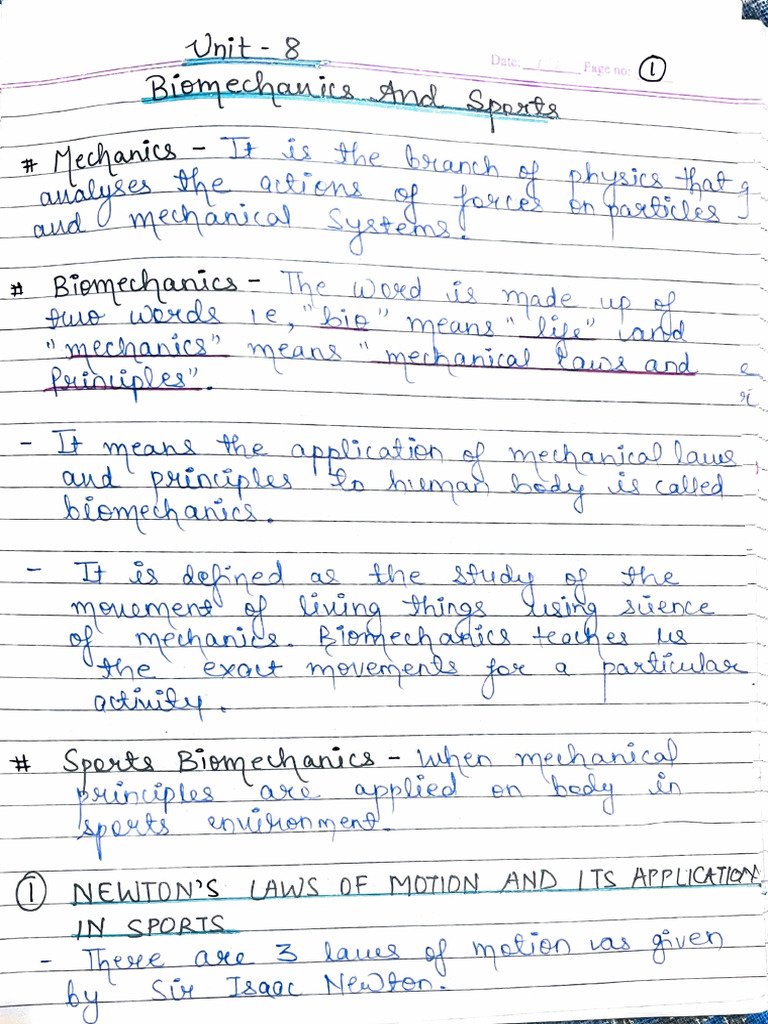 Unit - 8
Date: __/__/__ Page no: ①
Biomechanics And Sports
# Mechanics - It is the branch of physics that
analyses the actions of forces on particles
and mechanical Systems.
# Biomechanics - The word is made up of
two words ie, "bio" means "life" and
"mechanics" means "mechanical laws and
Principles".
- It means the application of mechanical laws
and principles to human body is called
biomechanics.
- It is defined as the study of the
movement of living things using science
of mechanics. Biomechanics teaches us
the exact movements for a particular
activity.
# Sports Biomechanics - When mechanical
principles are applied on body in
sports environment.
① NEWTON'S LAWS OF MOTION AND ITS APPLICATION
IN SPORTS
- There are 3 laws of motion as given
by Sir Isaac Newton.